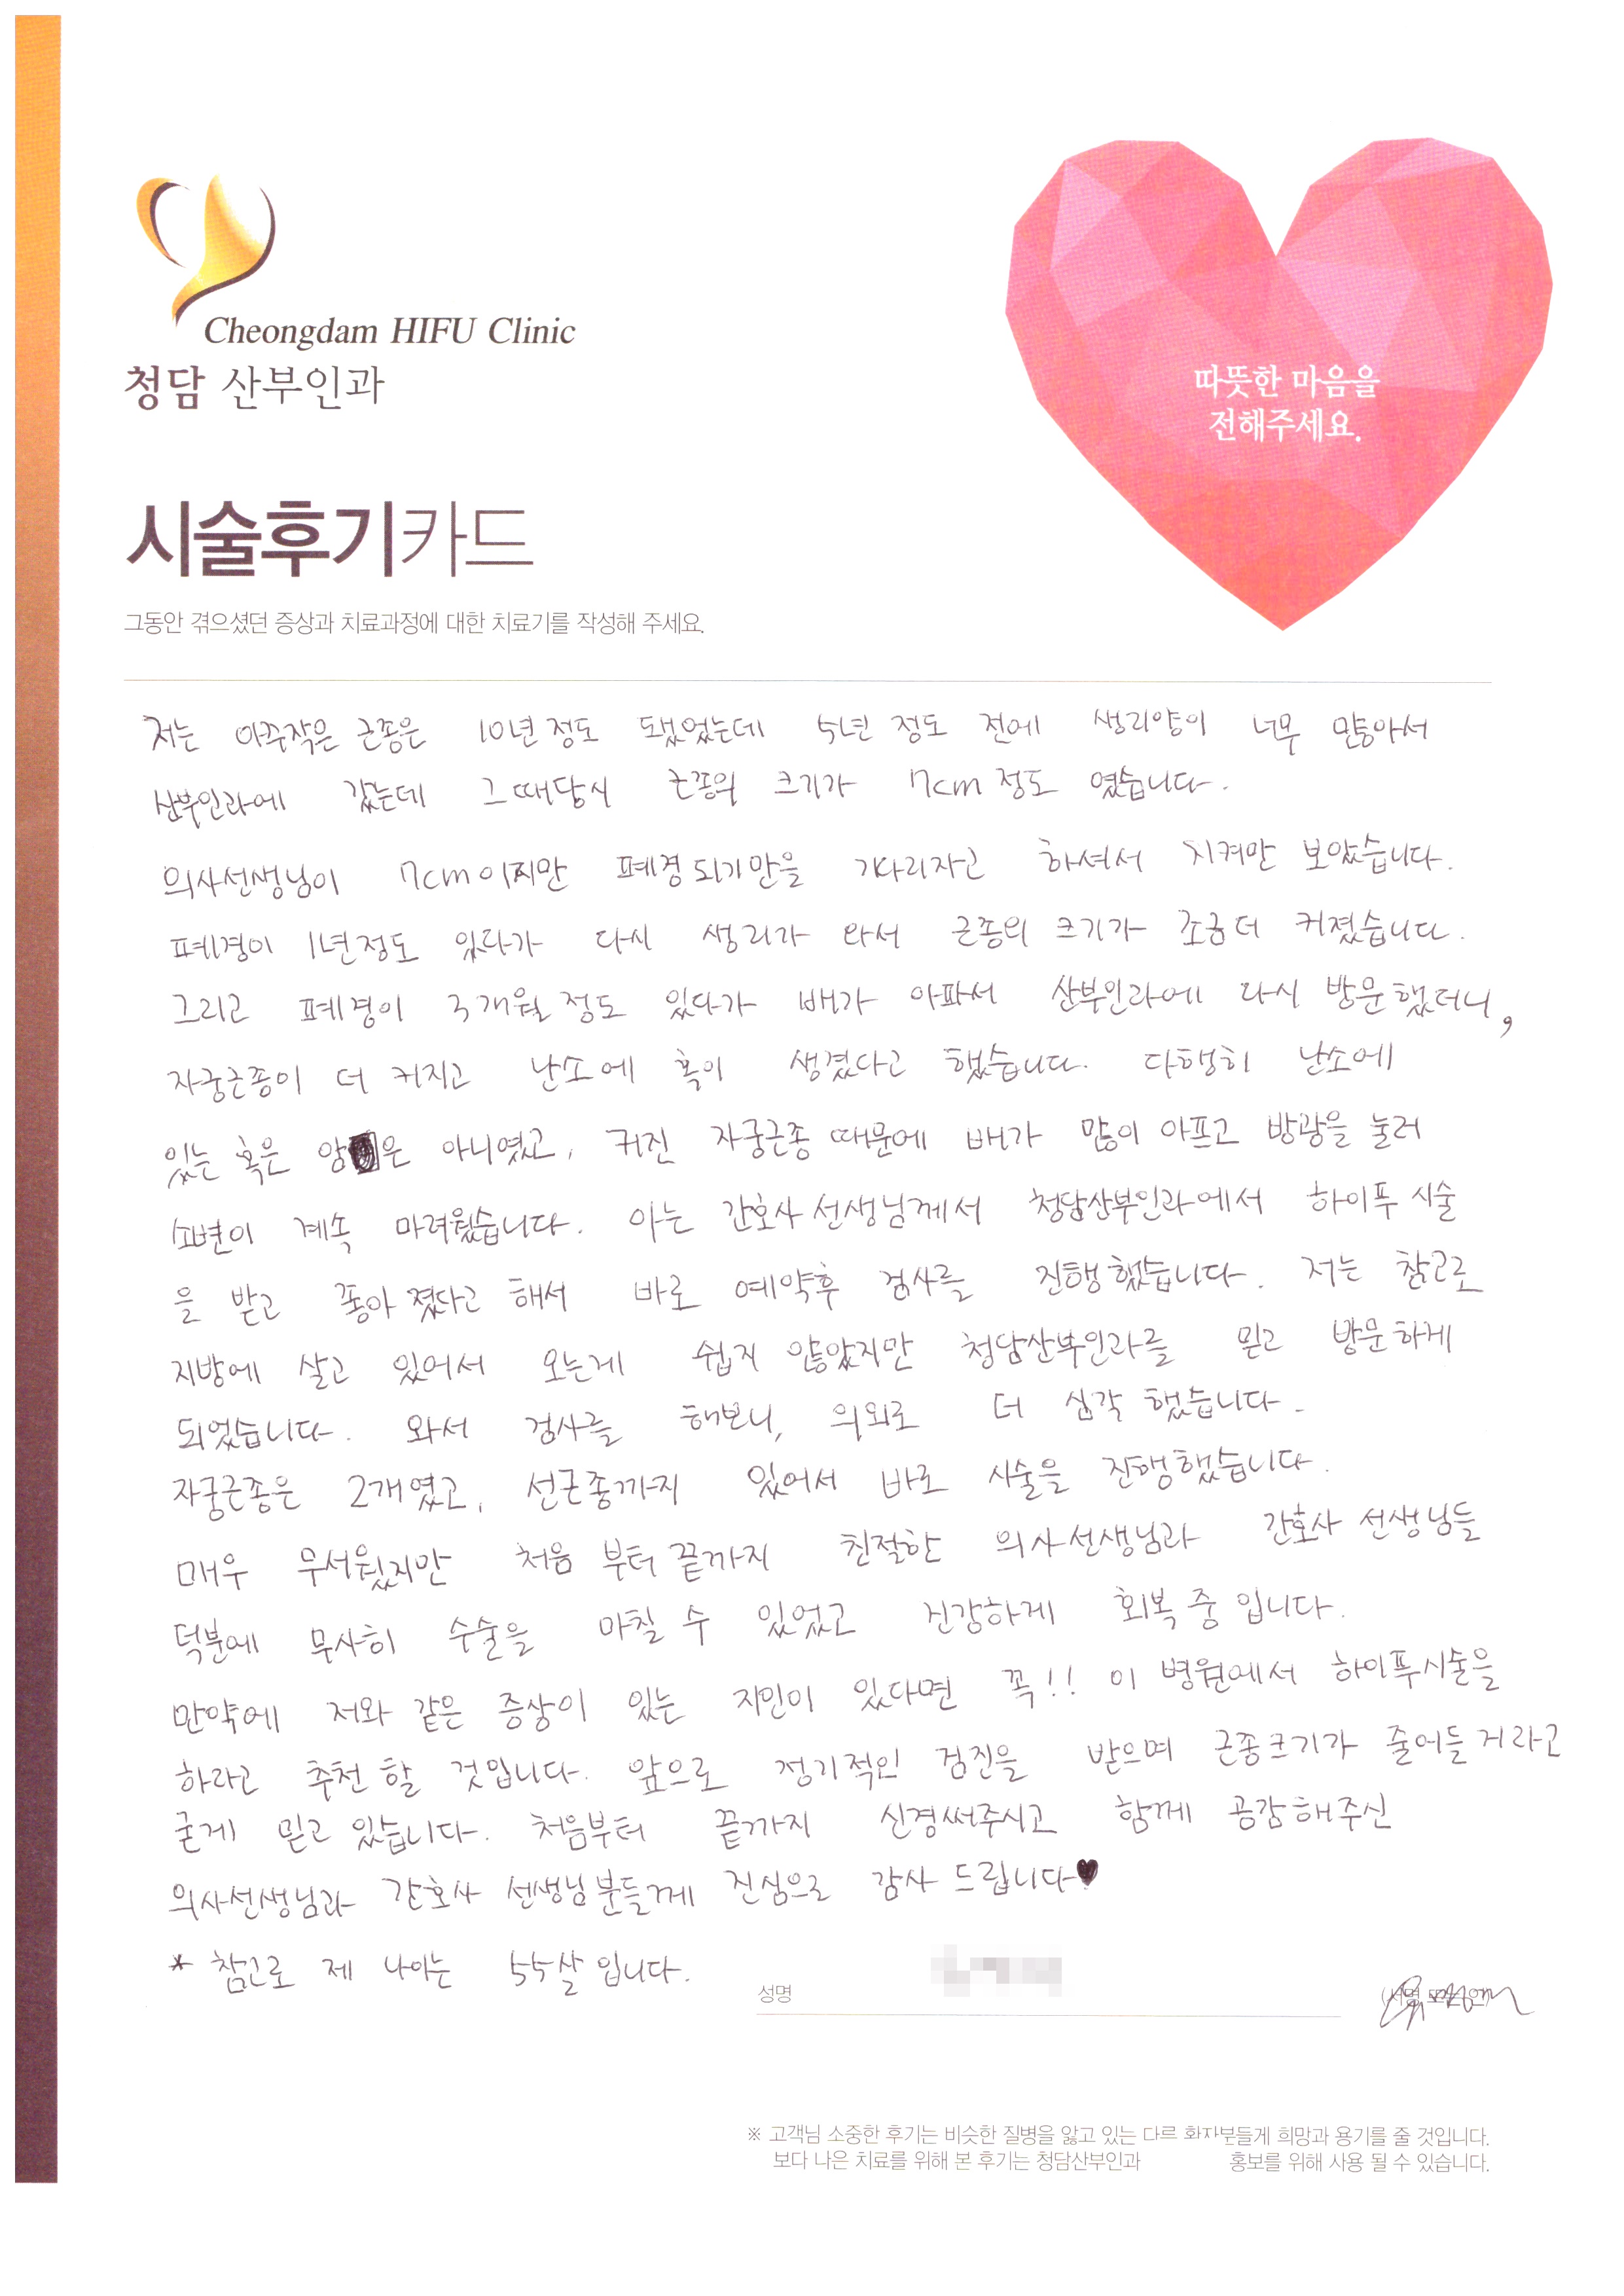 Cheongdam HIFU Clinic
청담 산부인과
따뜻한 마음을
전해주세요.
시술후기카드
그동안 겪으셨던 증상과 치료과정에 대한 치료기를 작성해 주세요.
저는 아주작은 근종은 10년 정도 됐었는데 5년 정도 전에 생리양이 너무 많아서
산부인과에 갔는데 그때당시 근종의 크기가 7cm 정도 였습니다.
의사선생님이 7cm이지만 폐경되기만을 기다리자고 하셔서 지켜만 보았습니다.
폐경이 1년정도 있다가 다시 생리가 와서 근종의 크기가 조금더 커졌습니다.
그리고 폐경이 3개월 정도 있다가 배가 아파서 산부인과에 다시 방문했더니,
자궁근종이 더 커지고 난소에 혹이 생겼다고 했습니다. 다행히 난소에
있는 혹은 암은 아니였고, 커진 자궁근종 때문에 배가 많이 아프고 방광을 눌러
소변이 계속 마려웠습니다. 아는 간호사 선생님께서 청담산부인과에서 하이푸 시술
을 받고 좋아졌다고 해서 바로 예약후 검사를 진행했습니다. 저는 참고로
지방에 살고 있어서 오는게 쉽지 않았지만 청담산부인과를 믿고 방문하게
되었습니다. 와서 검사를 해보니, 의외로 더 심각했습니다.
자궁근종은 2개였고, 선근종까지 있어서 바로 시술을 진행했습니다.
매우 무서웠지만 처음 부터 끝까지 친절한 의사선생님과 간호사 선생님들
덕분에 무사히 수술을 마칠 수 있었고 건강하게 회복 중 입니다.
만약에 저와 같은 증상이 있는 지인이 있다면 꼭!! 이 병원에서 하이푸시술을
하라고 추천 할 것입니다. 앞으로 정기적인 검진을 받으며 근종크기가 줄어들거라고
굳게 믿고 있습니다. 처음부터 끝까지 신경써주시고 함께 공감해주신
의사선생님과 간호사 선생님분들께 진심으로 감사 드립니다♥
* 참고로 제 나이는 55살 입니다.
성명
※ 고객님 소중한 후기는 비슷한 질병을 앓고 있는 다르 환자분들게 희망과 용기를 줄 것입니다.
보다 나은 치료를 위해 본 후기는 청담산부인과 홍보를 위해 사용 될 수 있습니다.